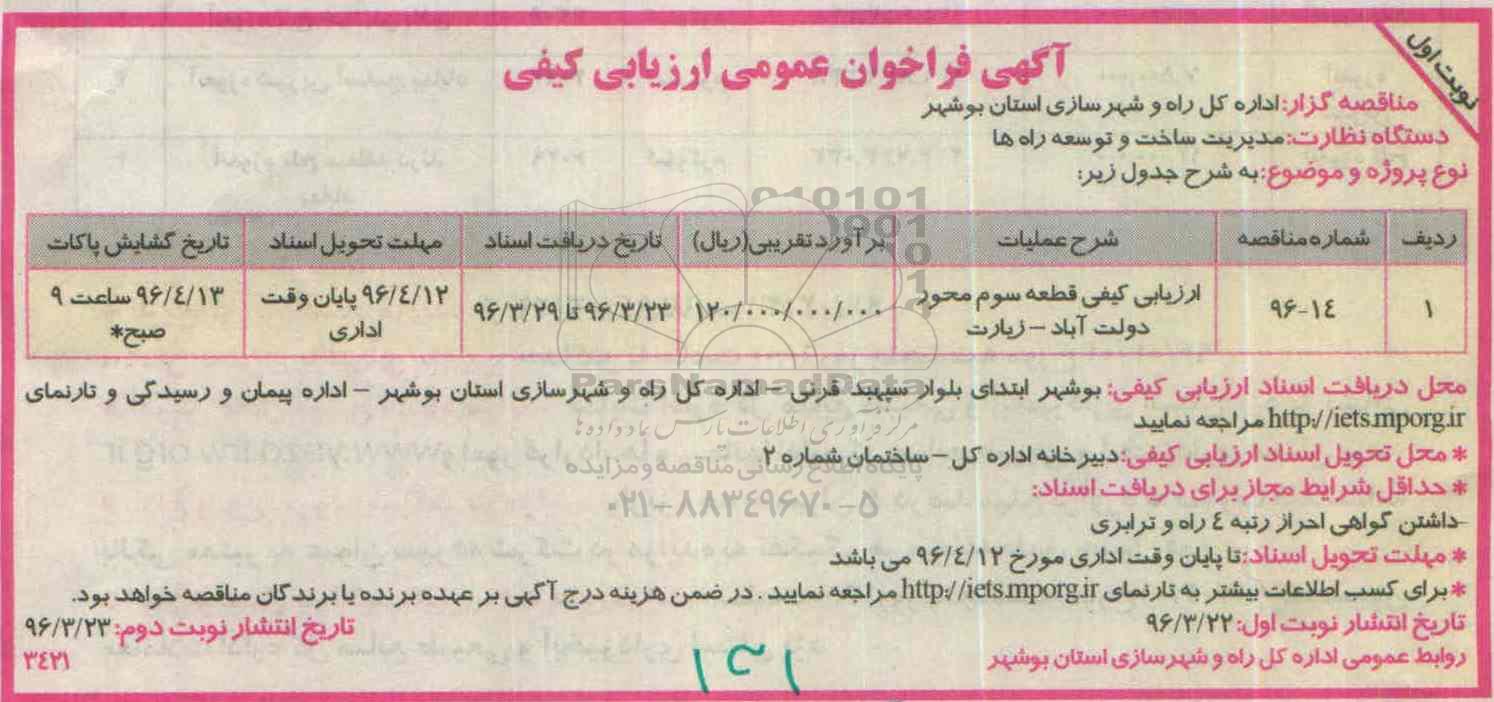 نوبت اول
آگهی فراخوان عمومی ارزیابی کیفی
مناقصه گزار: اداره کل راه و شهرسازی استان بوشهر
دستگاه نظارت: مدیریت ساخت و توسعه راه ها
نوع پروژه و موضوع: به شرح جدول زیر:
ردیف شماره مناقصه شرح عملیات برآورد تقریبی (ریال) تاریخ دریافت اسناد مهلت تحویل اسناد تاریخ گشایش پاکات
۱ ۹۶-۱٤ ارزیابی کیفی قطعه سوم محور ۱۲۰/۰۰۰/۰۰۰/۰۰۰ ۹۶/۳/۲۳ تا ۹۶/۳/۲۹ ۹۶/٤/۱۲ پایان وقت ۹۶/٤/۱۳ ساعت ۹
دولت آباد – زیارت اداری صبح*
محل دریافت اسناد ارزیابی کیفی: بوشهر ابتدای بلوار سپهبد قرنی – اداره کل راه و شهرسازی استان بوشهر – اداره پیمان و رسیدگی و تارنمای
http://iets.mporg.ir مراجعه نمایید
* محل تحویل اسناد ارزیابی کیفی: دبیرخانه اداره کل – ساختمان شماره ۲
* حداقل شرایط مجاز برای دریافت اسناد:
-داشتن گواهی احراز رتبه ٤ راه و ترابری
* مهلت تحویل اسناد: تا پایان وقت اداری مورخ ۹۶/٤/۱۲ می باشد
* برای کسب اطلاعات بیشتر به تارنمای http://iets.mporg.ir مراجعه نمایید . در ضمن هزینه درج آگهی بر عهده برنده یا برندگان مناقصه خواهد بود.
تاریخ انتشار نوبت اول: ۹۶/۳/۲۲ تاریخ انتشار نوبت دوم: ۹۶/۳/۲۳
روابط عمومی اداره کل راه و شهرسازی استان بوشهر ۳٤۲۱
ParsNamadData
مرکز فرآوری اطلاعات پارس نماد داده ها
پایگاه اطلاع رسانی مناقصه و مزایده
۰۲۱-۸۸۳٤۹۶۷۰-۵